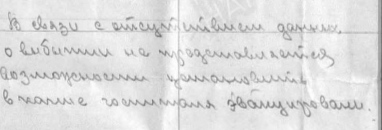 В связи с отсутствием данных
о выбытии не представляется
возможности установить
в какие госпиталя эвакуирован.